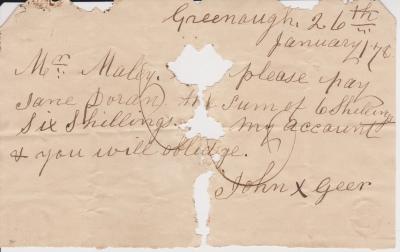 Greenough. 26th
January /70
Mr Maley. please pay
Jane Doran the sum of 6 Shilling
Six Shillings my account
& you will obledge.
John x Geer